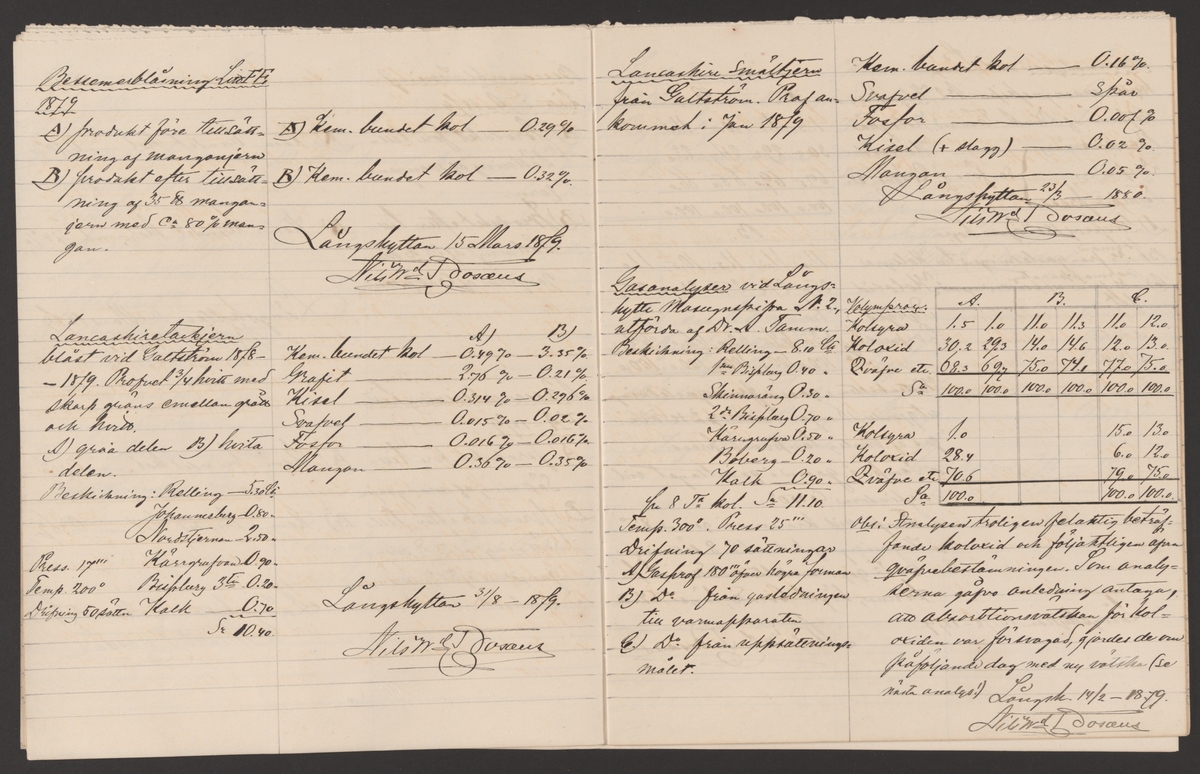 Bessemerblåsning
1879
A) produkt före tillsätt-
ning af manganjern
B) produkt efter tillsätt-
ning af 35 ℔ mangan-
jern med Ca 80 % man-
gan.
A) Kem. bundet kol — 0.29 %
B) Kem. bundet kol — 0.32 %.
Långshyttan 15 Mars 1879.
Lancashiretackjern
blåst vid Galtström 1878-
-1879. Profvet 3/4 hvitt med
skarp gräns emellan grått
och hvitt.
A) gråa delen B) hvita
delen.
A) B)
Kem. bundet kol — 0.49 % — 3.35 %.
Grafit — 2.76 % — 0.21 %.
Kisel — 0.314 % — 0.296 %
Svafvel — 0.015 % — 0.02 %.
Fosfor — 0.016 % — 0.016 %.
Mangan — 0.36 % — 0.35 %.
Beskickning: Relling — 5.30
Johannesberg — 0.80 "
Nordstjernan — 2.50 "
Press. 17''' Kärrgrufvan 0.90 "
Temp. 200° Bispberg 0.20 "
Drifning 50 sättn. Kalk — 0.70
Sa 10.40.
Långshyttan 31/8 — 1879.
Lancashire Smältjern
från Galtström. Prof an-
kommet i Jan 1879
Kem. bundet kol — 0.16 %.
Svafvel — Spår
Fosfor — %
Kisel (+ slagg) — 0.02 %
Mangan — 0.05 %.
Långshyttan 23/3 — 1880.
Gasanalyser vid Långs-
hytte Masugnspipa N. 2,
utförda af Dr. A. Tamm.
Beskickning: Relling — 8.10
Bispberg 0.40 "
Skinnaräng 0.30 "
2da Bispberg 0.70 "
Kärrgrufva 0.50 "
Boberg — 0.20 "
Kalk — 0.90 "
på 8 Tr kol. Sa 11.10
Temp. 300°. Press 25'''
Drifning 70 sättningar
A) Gasprof 180''' öfver högra forman
B) Do från gasledningen
till varmapparaten
C) Do från uppsättnings-
målet.
A. B. C.
Volymproc:
Kolsyra 1.5 1.0 11.0 11.3 11.0 12.0
Koloxid 30.2 29.3 14.0 14.6 12.0 13.0
Qväfve etc. 68.3 69.7 75.0 74.1 77.0 75.0
Sa 100.0 100.0 100.0 100.0 100.0 100.0
Kolsyra 1.0 15.0 13.0
Koloxid 28.4 6.0 12.0
Qväfve etc 70.6 79.0 75.0
Sa 100.0 100.0 100.0
Obs! Analysen troligen felaktig beträf-
fande koloxid och följaktligen äfven
qväfvebestämningen. Som analy-
serna gåfvo anledning antaga,
att absorbtionsvätskan för kol-
oxiden var försvagad, gjordes de om
påföljande dag med ny vätska (se
nästa analys!) Långsh. 14/2 — 1879.